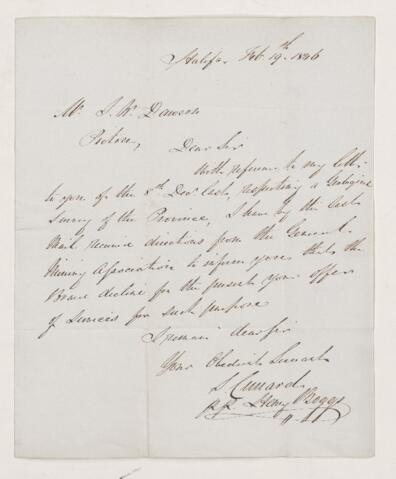 Halifax Feb 19th 1846
Mr J. W. Dawson
Pictou,
Dear Sir
With reference to my letter
to you of the 8th Decr last, respecting a Geological
Survey of the Province, I have by the last
Mail received directions from the General
Mining Association to inform you that the
Board decline for the present your offer
of Services for such purpose
I remain dear Sir
Your Obedient Servant
S Cunard
Henry Boggs